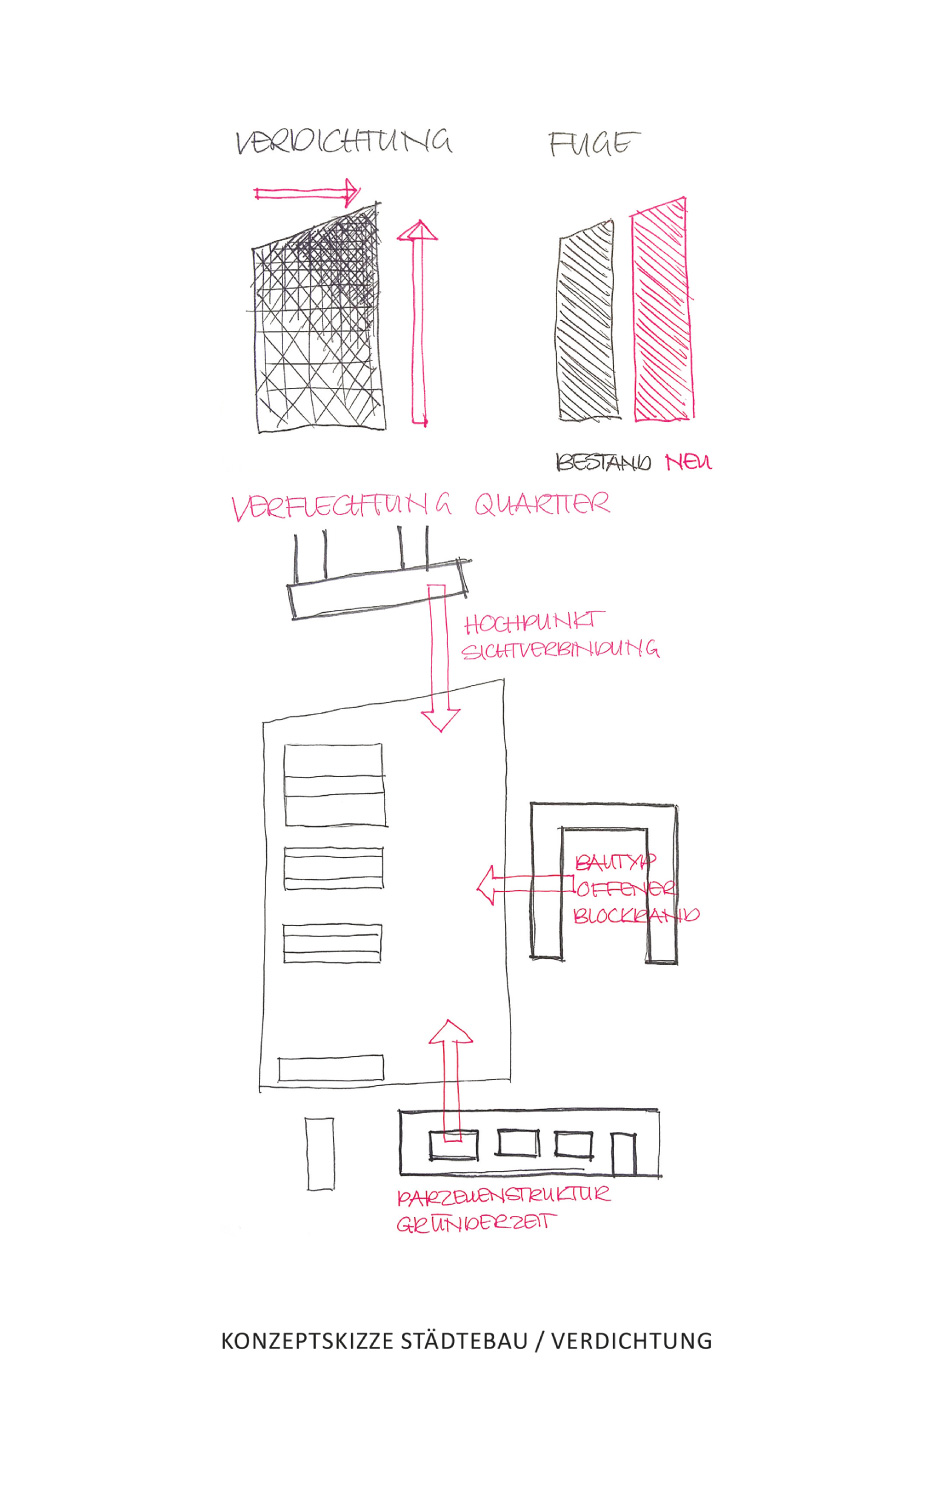 VERDICHTUNG
FUGE
BESTAND NEU
VERFLECHTUNG QUARTIER
HOCHPUNKT
SICHTVERBINDUNG
BAUTYP
OFFENER
BLOCKRAND
PARZELLENSTRUKTUR
GRÜNDERZEIT
KONZEPTSKIZZE STÄDTEBAU / VERDICHTUNG